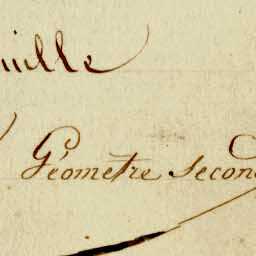 uille
Géometre second